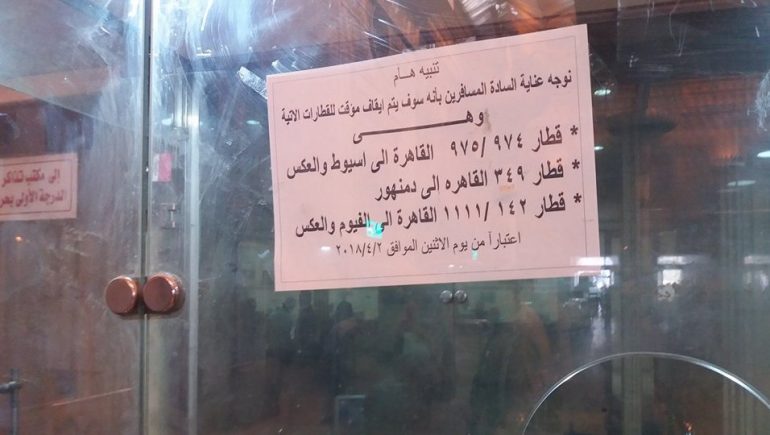 تنبيه هـام
نوجه عناية السادة المسافرين بأنه سوف يتم ايقاف مؤقت للقطارات الاتية
وهـــــى
* قطار ٩٧٤/ ٩٧٥ القاهرة الى اسيوط والعكس
* قطار ٣٤٩ القاهره الى دمنهور
* قطار ١٤٢ /١١١١ القاهرة الى الفيوم والعكس
اعتبارآ من يوم الاثنين الموافق ٢٠١٨/٤/٢
إلى مكتب تذاكر
الدرجة الأولى بحر